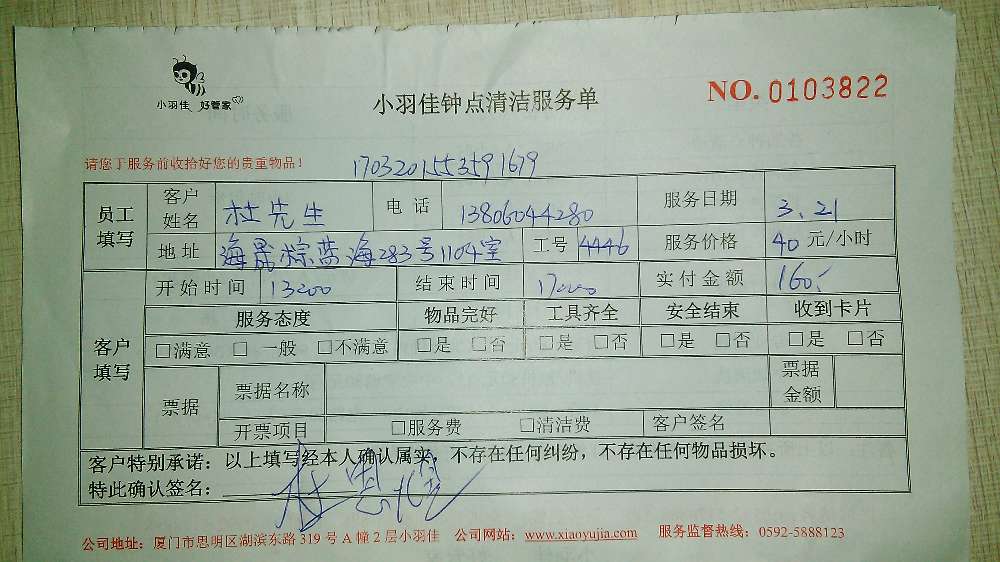 小羽佳 好管家
小羽佳钟点清洁服务单
NO. 0103822
请您于服务前收拾好您的贵重物品！
1703201553591679
员工填写 客户姓名 杜先生 电话 13806044280 服务日期 3.21
地址 海晟棕蓝海283号1104室 工号 4446 服务价格 40 元/小时
客户填写 开始时间 13:00 结束时间 17:00 实付金额 160.-
服务态度 物品完好 工具齐全 安全结束 收到卡片
□满意 □ 一般 □不满意 □是 □否 □是 □否 □是 □否 □是 □否
票据 票据名称 票据金额
开票项目 □服务费 □清洁费 客户签名
客户特别承诺：以上填写经本人确认属实，不存在任何纠纷，不存在任何物品损坏。
特此确认签名：
公司地址：厦门市思明区湖滨东路 319 号 A 幢 2 层小羽佳 公司网站：www.xiaoyujia.com 服务监督热线：0592-5888123